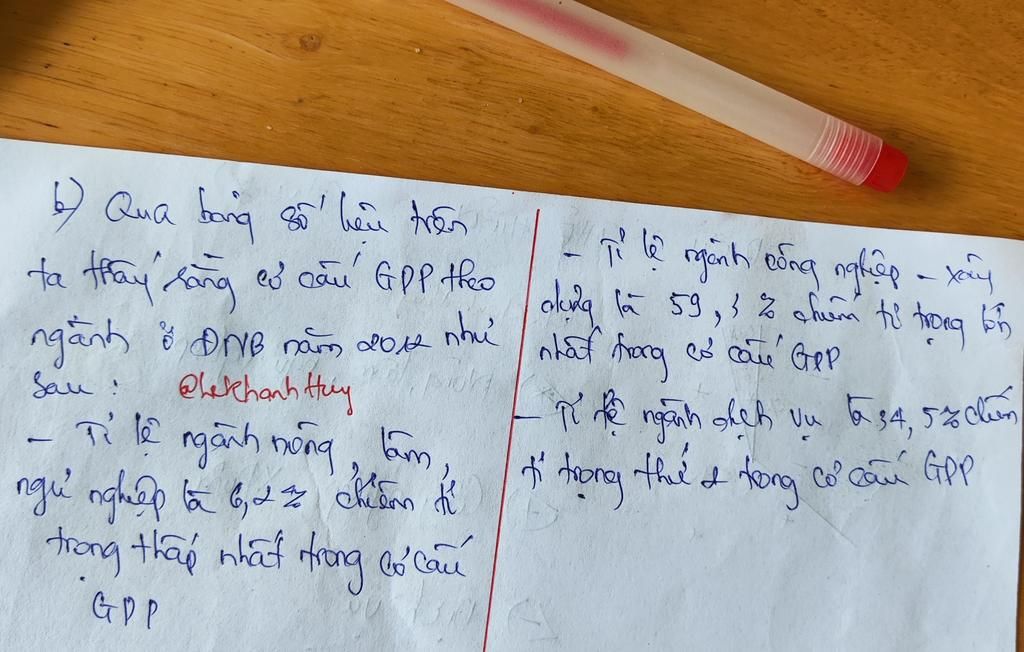 b) Qua bảng số liệu trên
ta thấy rằng cơ cấu GDP theo
ngành ở ĐNB năm 2012 như
sau: @lekhanhHuy
- Tỉ lệ ngành nông, lâm,
ngư nghiệp là 6,2 % chiếm tỉ
trọng thấp nhất trong cơ cấu
GDP
- Tỉ lệ ngành công nghiệp - xây
dựng là 59,3 % chiếm tỉ trọng lớn
nhất trong cơ cấu GDP
- Tỉ lệ ngành dịch vụ là 34,5% chiếm
tỉ trọng thứ 2 trong cơ cấu GDP